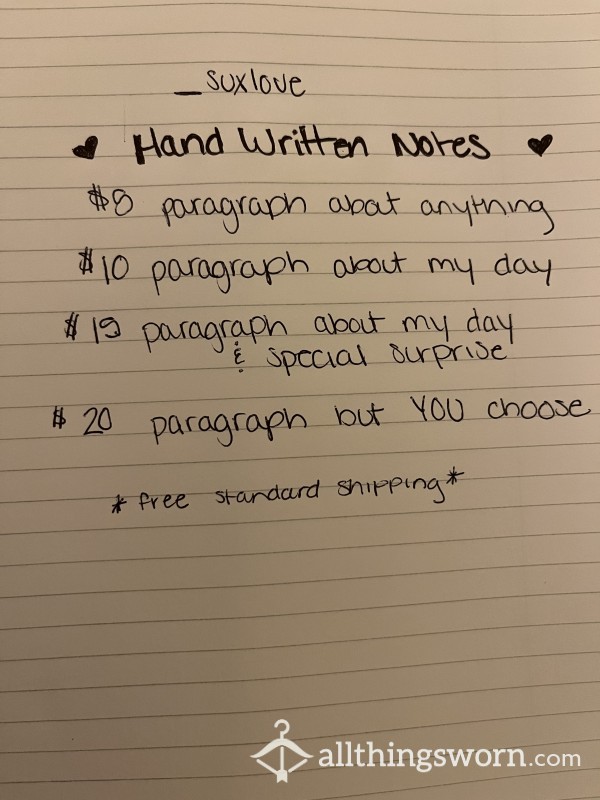 _suxlove
♥ Hand Written Notes ♥
$8 paragraph about anything
$10 paragraph about my day
$15 paragraph about my day
& special surprise
$20 paragraph but YOU choose
*free standard shipping*
allthingsworn.com